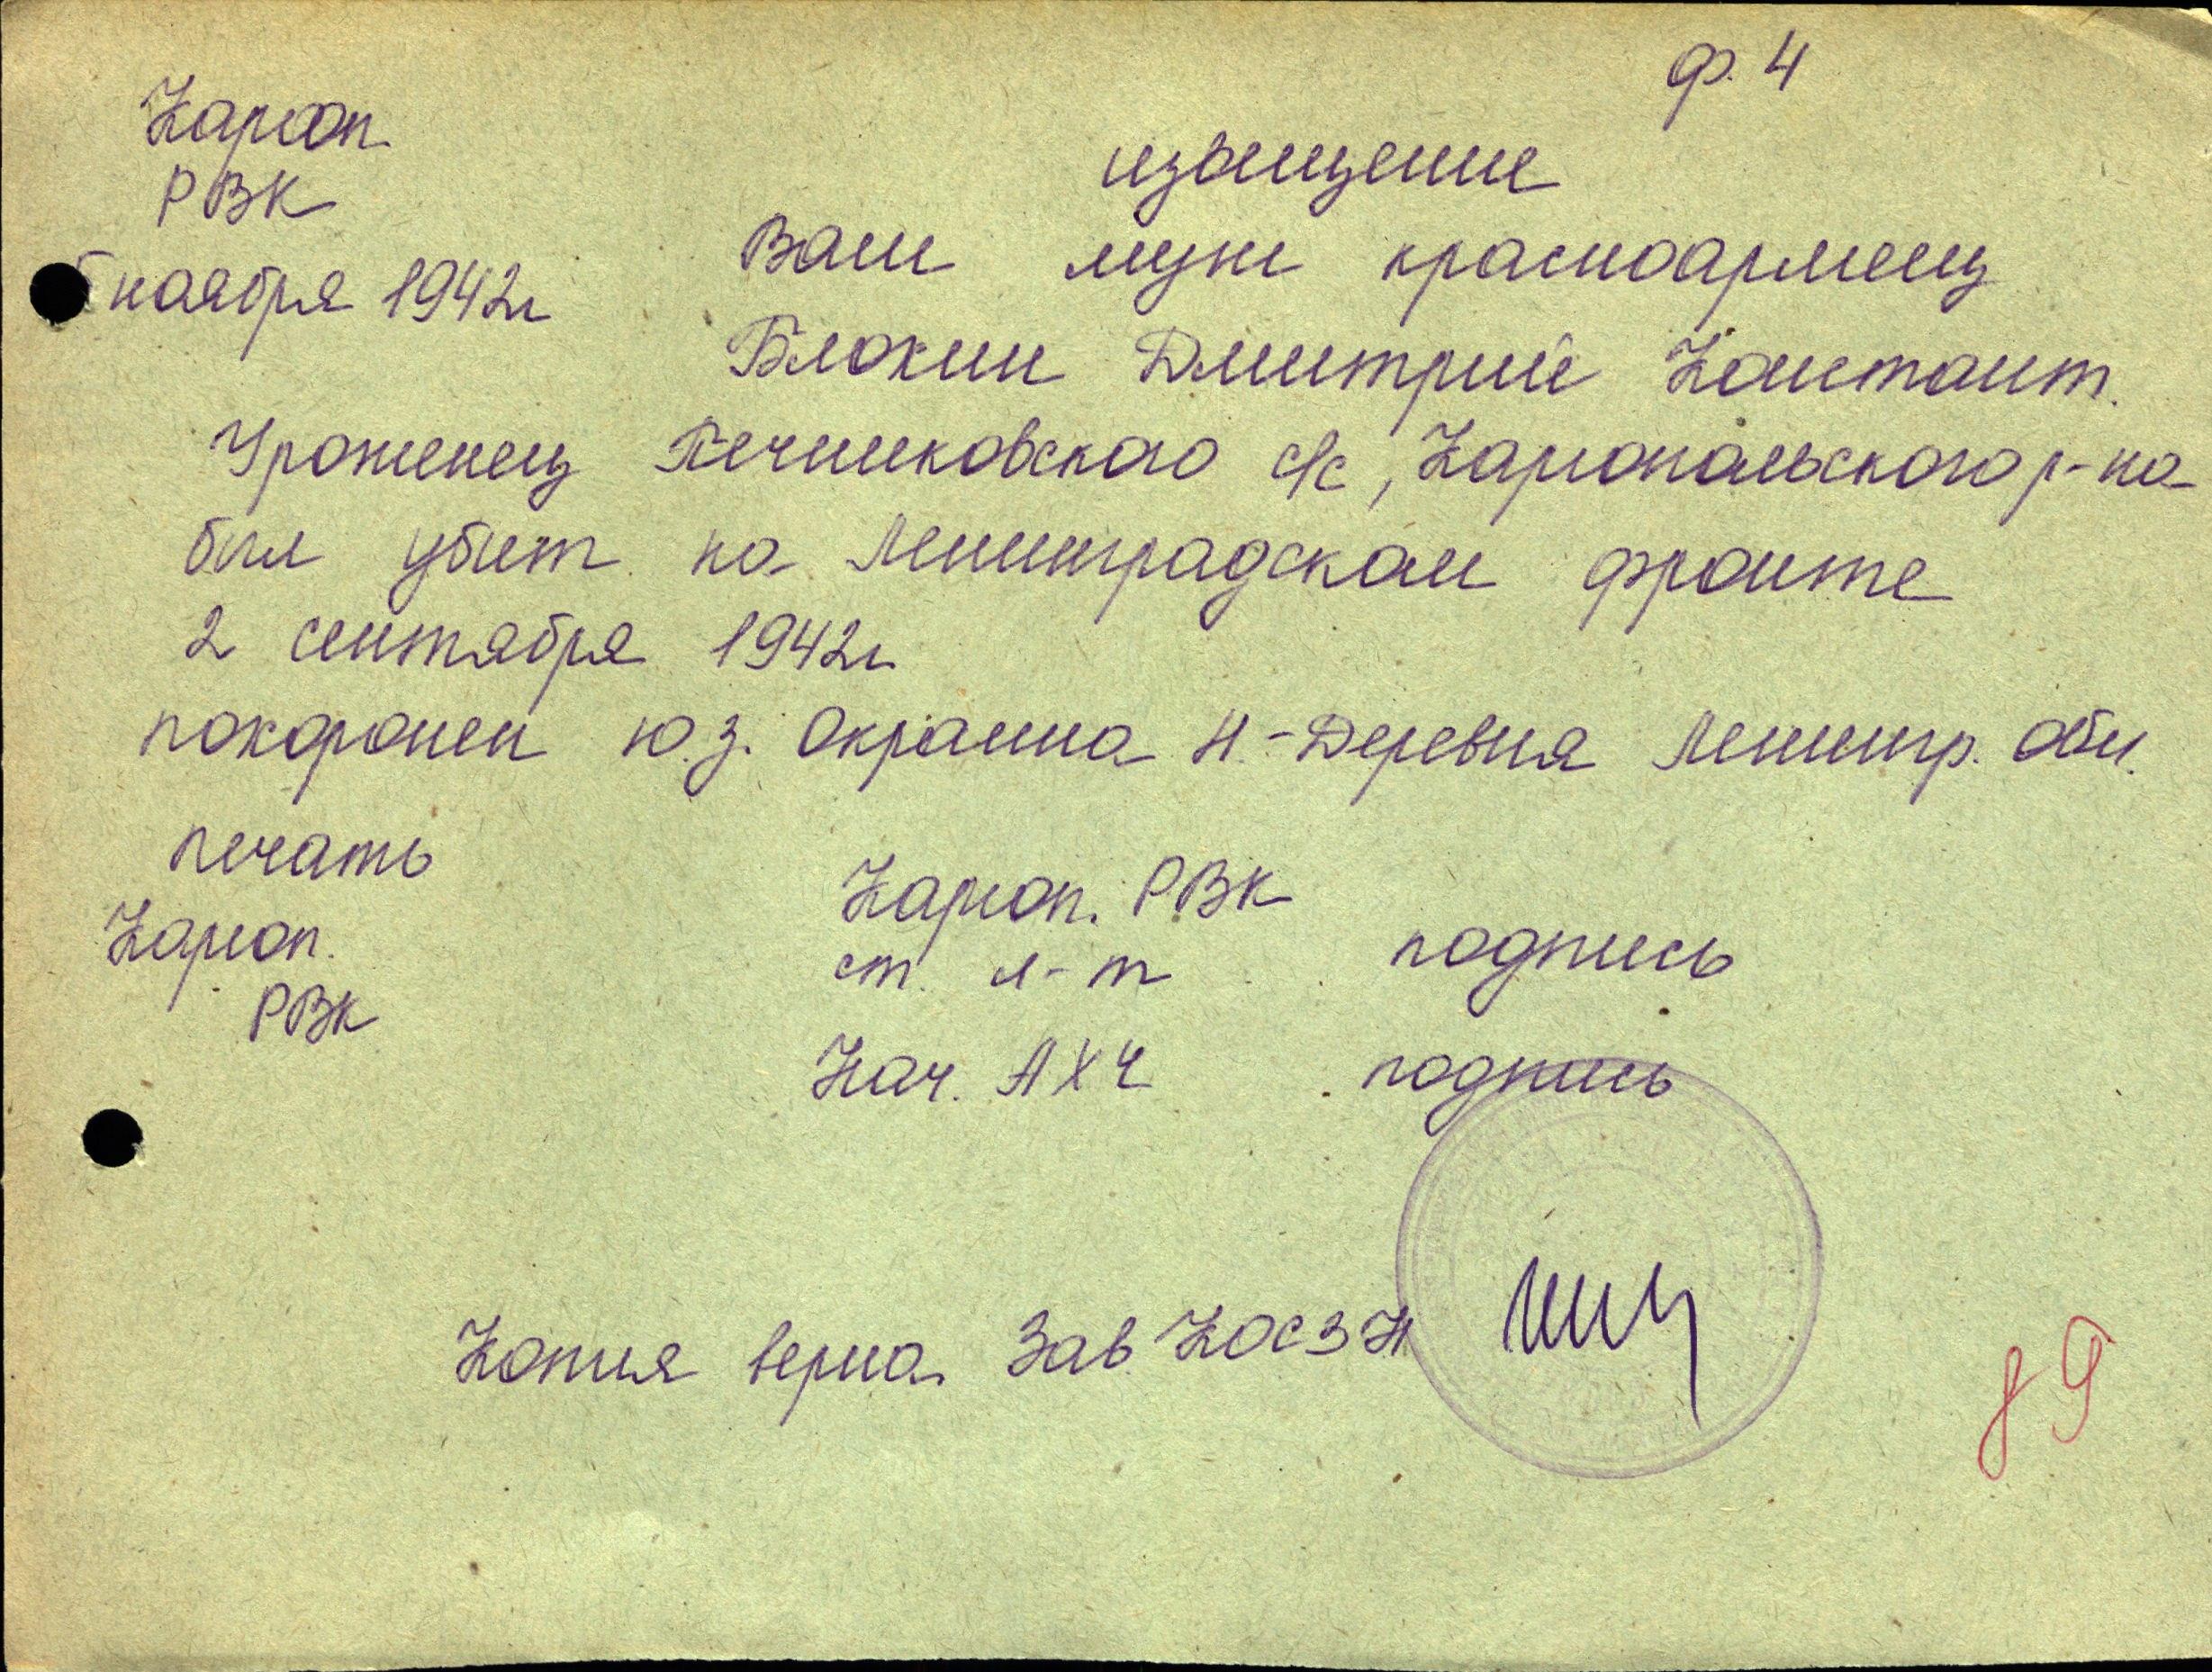 ф. 4
Каргоп.
РВК
извещение
ноября 1942г
Ваш муж красноармеец
Блохин Дмитрий Констант.
Уроженец Печниковского с/с, Каргопольского р-на
был убит на Ленинградском фронте
2 сентября 1942г
похоронен ю.з. Окраина Н-Деревня Ленингр. обл.
печать
Каргоп.
РВК
Каргоп. РВК
ст. л-т подпись
Нач. АХЧ подпись
Копия верна Зав
89